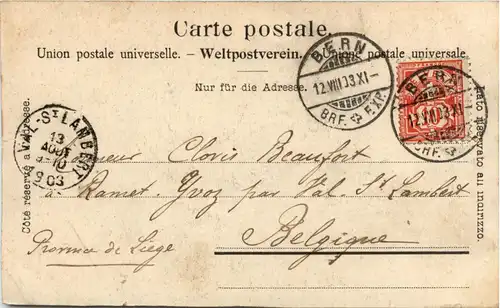 Carte postale.
Union postale universelle. - Weltpostverein. - Unione postale universale.
Nur für die Adresse.
BERN
12.VIII.03.XI-
BRF. EXP.
BERN
12.VIII.03.XI-
BRF.
10
VAL-ST LAMBERT
13
AOUT
1903
Côté réservé à l'adresse.
Lato riservato all'indirizzo.
Monsieur Clovis Beaufort
à Ramet-Yvoz par Val St Lambert
Province de Liege
Belgique